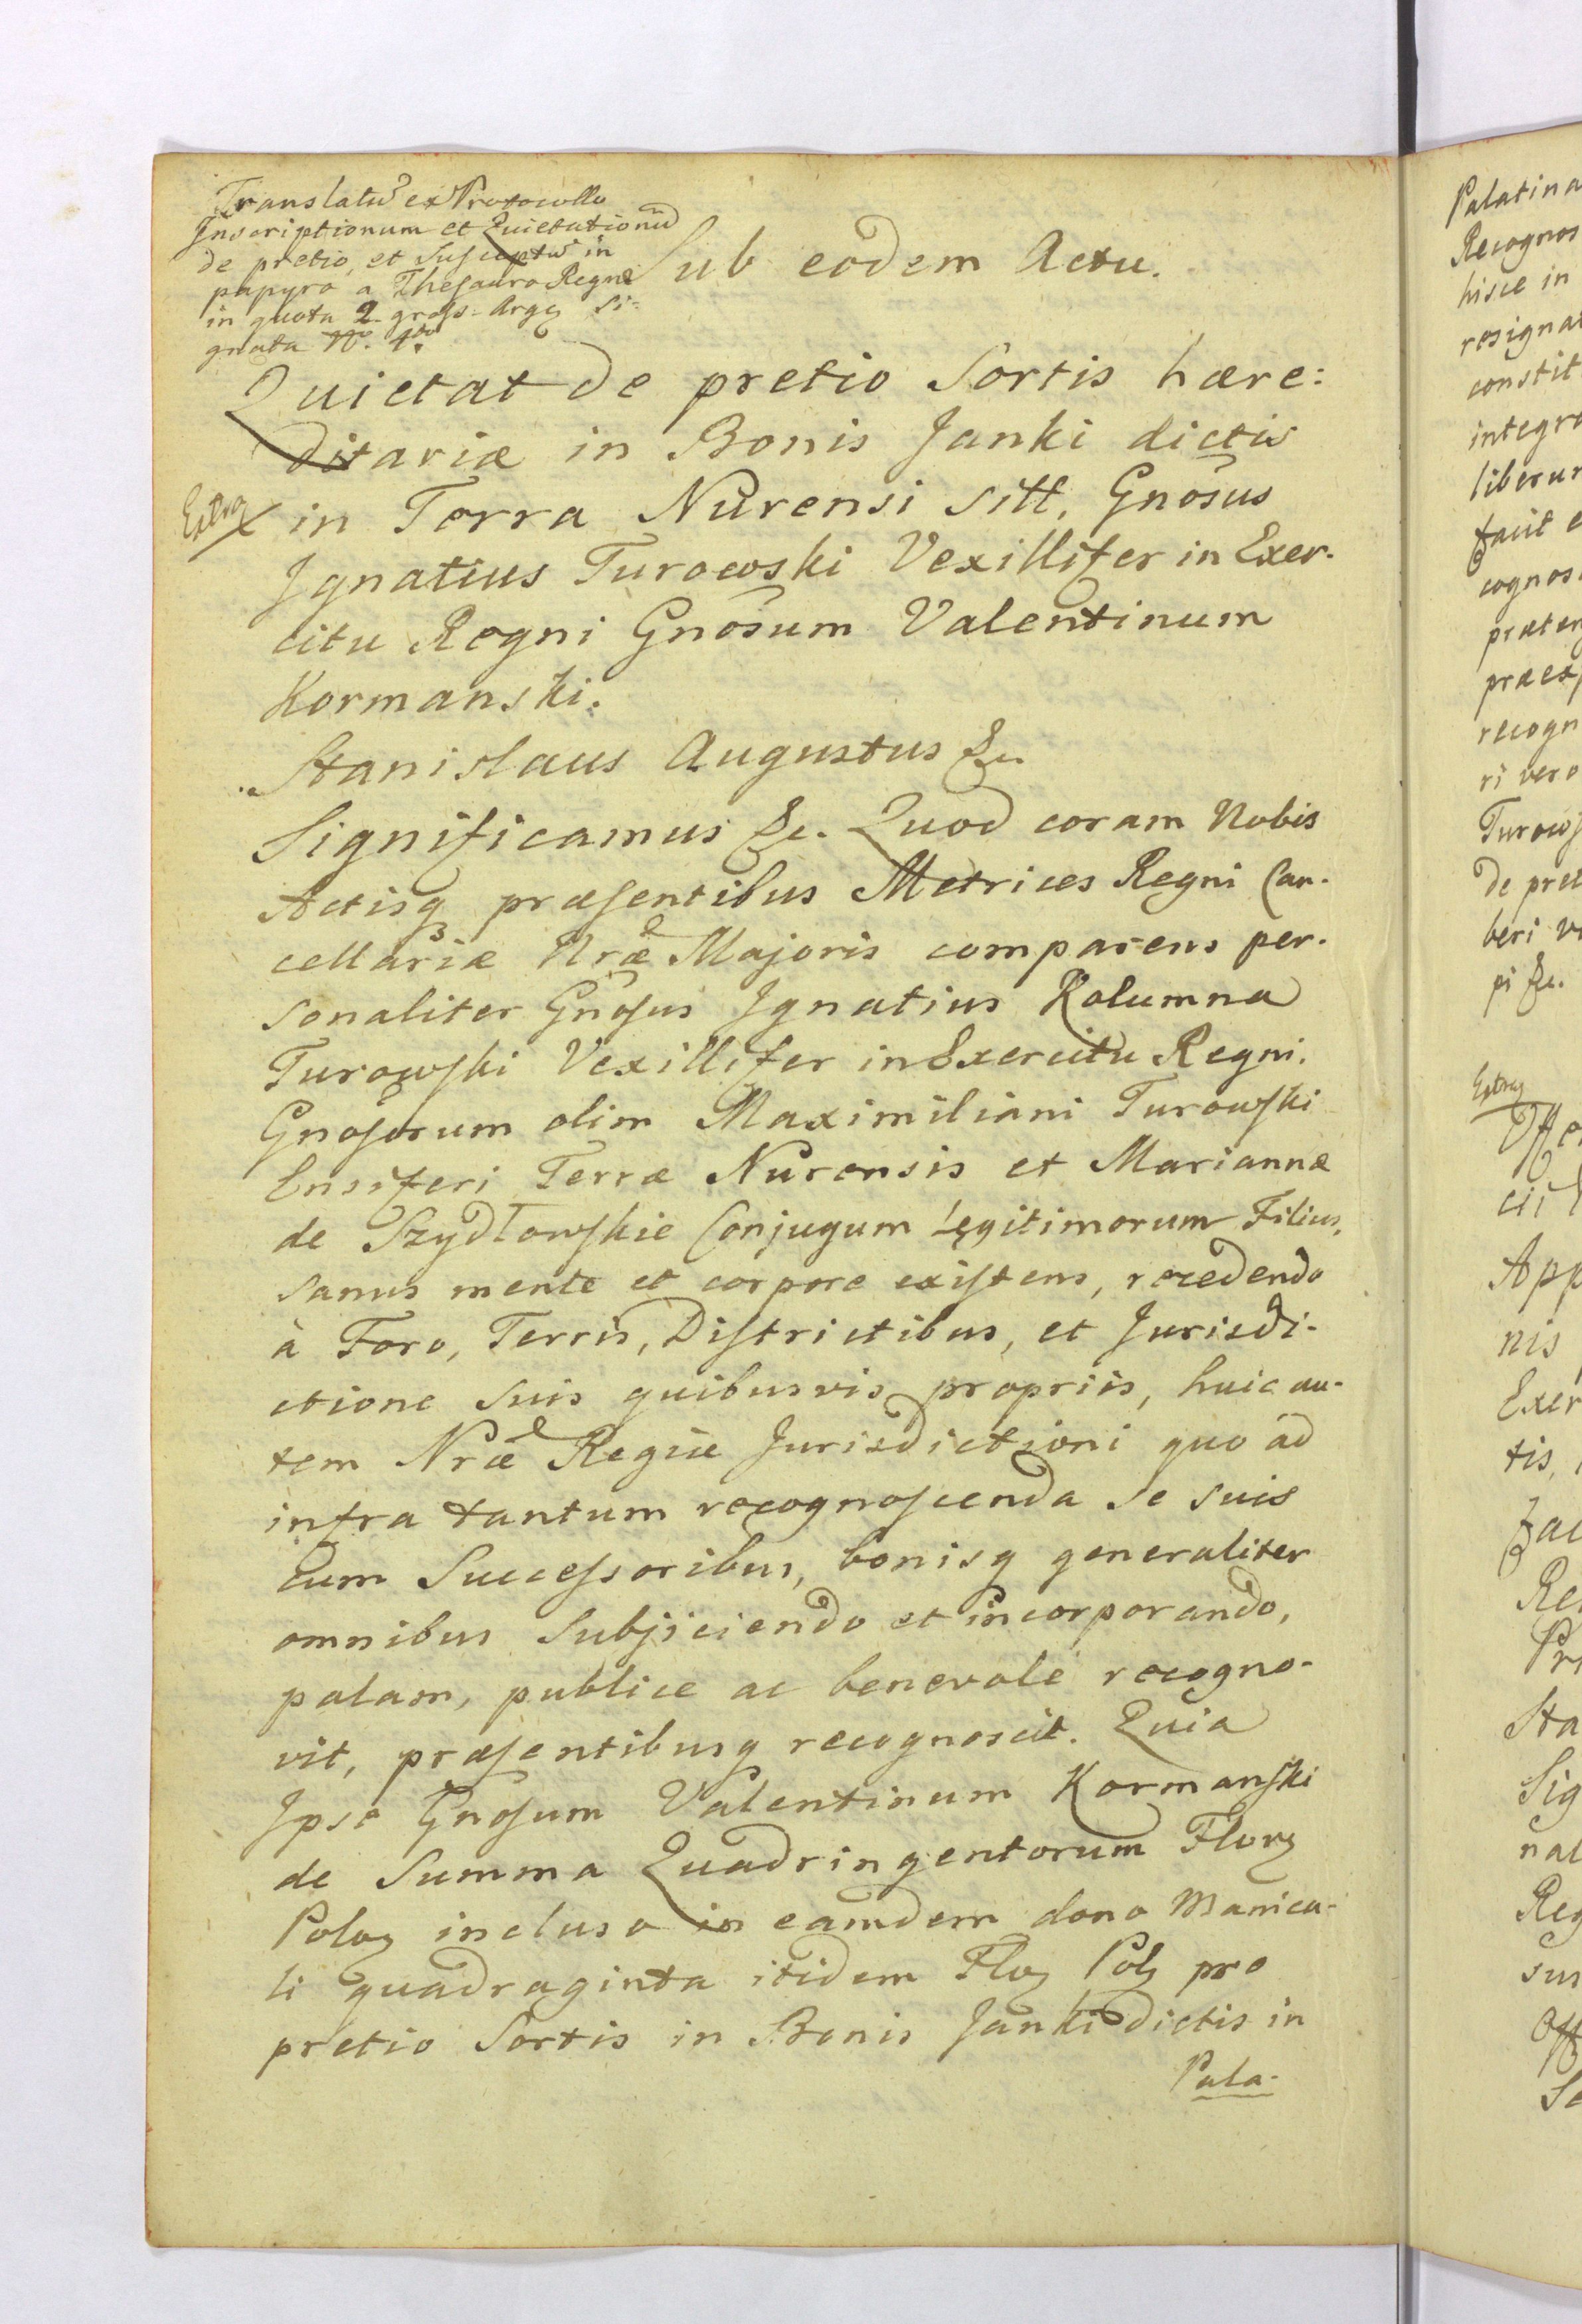 Translatũ ex Protocollo
Inscriptionum et Quietationũ
de pretio, et Susceptũ in
papyro a Thesauro Regni
in quota 2 gross. Argẽ si=
gnata No. 4to.
Sub eodem Actu.
Quietat de pretio Sortis hære:
ditariæ in Bonis Janki dictis
Extrа
in Terra Nurensi sitt, Gnosus
Ignatius Turowski Vexillifer in Exer-
citu Regni Gnosum Valentinum
Kormanski.
Stanislaus Augustus &c.
Significamus &c. Quod coram Nobis
Actisq præsentibus Metrices Regni Can-
cellariæ Nræ Majoris comparens per-
sonaliter Gnosus Ignatius Kolumna
Turowski Vexillifer in Exercitu Regni.
Gnosorum olim Maximiliani Turowski
Ensiferi Terræ Nurensis et Mariannæ
de Szydłowskie Conjugum Legitimorum Filius,
sanus mente et corpore existens, recedendo
à Foro, Terris, Districtibus, et Jurisdi-
ctione suis quibusvis propriis, huic au-
tem Nræ Regiæ Jurisdictioni quo ad
infra tantum recognoscenda se suis
cum Successoribus, bonisq generaliter
omnibus Subjiciendo et incorporando,
palam, publice ac benevole recogno-
vit, præsentibusq recognoscit. Quia
Ipse Gnosum Valentinum Kormanski
de Summa Quadringentorum Florz
Poloz incluso in eamdem dono Manica-
li quadraginta itidem Floz Polz pro
pretio Sortis in Bonis Janki dictis in
Pala-
Palatina
Recognos
hisce in
resigna
constit
integra
liberu
facit
cognos
præter
præex
recogn
ri vero
Turows
de pret
beri v
pi &c.
Extra
Offe
cii
App
nis
Exer
tis,
fac
Re
Pr
Sta
Sig
nal
Reg
sus
Off
Se